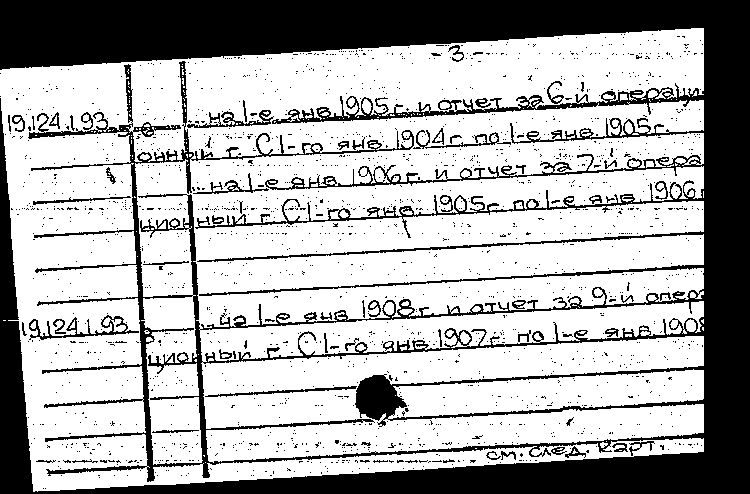 - 3 -
19.124.1.93 ...на 1-е янв. 1905 г. и отчет за 6-й операци-
онный г. С 1-го янв. 1904 г. по 1-е янв. 1905 г.
...на 1-е янв. 1906 г. и отчет за 7-й опера
ционный г. С 1-го янв. 1905 г. по 1-е янв. 1906 г
19.124.1.93 ...на 1-е янв 1908 г. и отчет за 9-й опер
ционный г. С 1-го янв. 1907 г. по 1-е янв. 1908
см. след. карт.